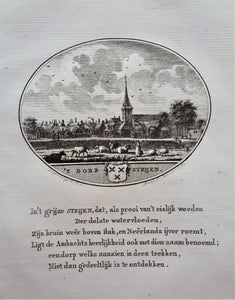 'T DORP STRIJEN.
In't grijze STRIJEN, dat, als prooi van't ijslijk woeden
Der dolste watervloeden,
Zijn kruin weêr boven stak, en Neêrlands ijver roemt,
Ligt de Ambachts heerlijkheid ook met dien naam benoemd;
een dorp welks aanzien is deen trekken,
Niet dan gedeeltlijk is te ontdekken.